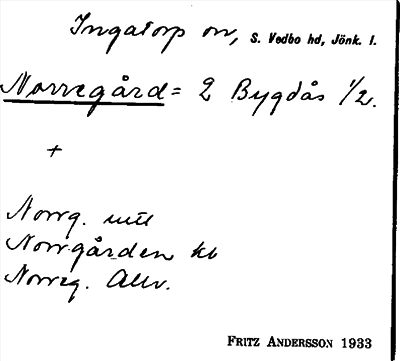 Ingatorp sn, S. Vedbo hd, Jönk. l.
Norregård = 2 Bygdås 1/2.
+
Norrg. mtl
Norrgården kb
Norreg. Allv.
FRITZ ANDERSSON 1933